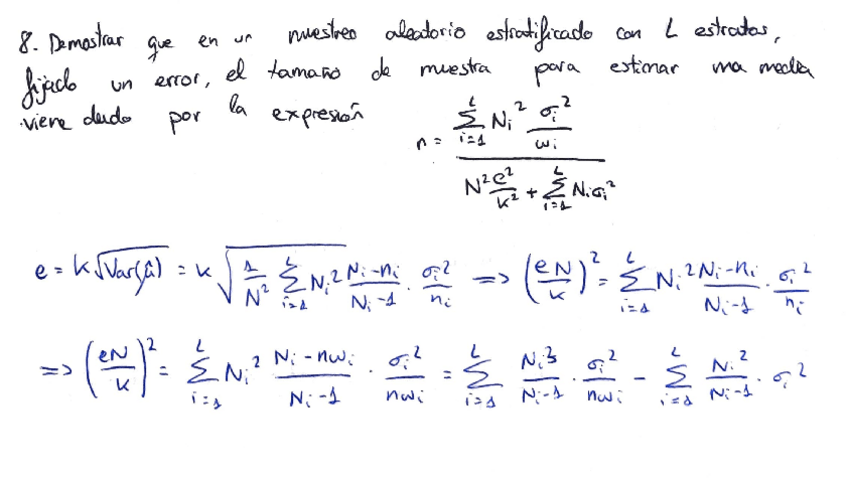 8. Demostrar que en un muestreo aleatorio estratificado con L estratos,
fijado un error, el tamaño de muestra para estimar una media
viene dado por la expresión n = \frac{\sum_{i=1}^{L} N_i^2 \frac{σ_i^2}{w_i}}{N^2 \frac{e^2}{k^2} + \sum_{i=1}^{L} N_i σ_i^2}
e = k\sqrt{Var(\hat{μ})} = k \sqrt{\frac{1}{N^2} \sum_{i=1}^{L} N_i^2 \frac{N_i - n_i}{N_i - 1} · \frac{σ_i^2}{n_i}} => \left(\frac{eN}{k}\right)^2 = \sum_{i=1}^{L} N_i^2 \frac{N_i - n_i}{N_i - 1} · \frac{σ_i^2}{n_i}
=> \left(\frac{eN}{k}\right)^2 = \sum_{i=1}^{L} N_i^2 \frac{N_i - nw_i}{N_i - 1} · \frac{σ_i^2}{nw_i} = \sum_{i=1}^{L} \frac{N_i^3}{N_i - 1} · \frac{σ_i^2}{nw_i} - \sum_{i=1}^{L} \frac{N_i^2}{N_i - 1} · σ_i^2